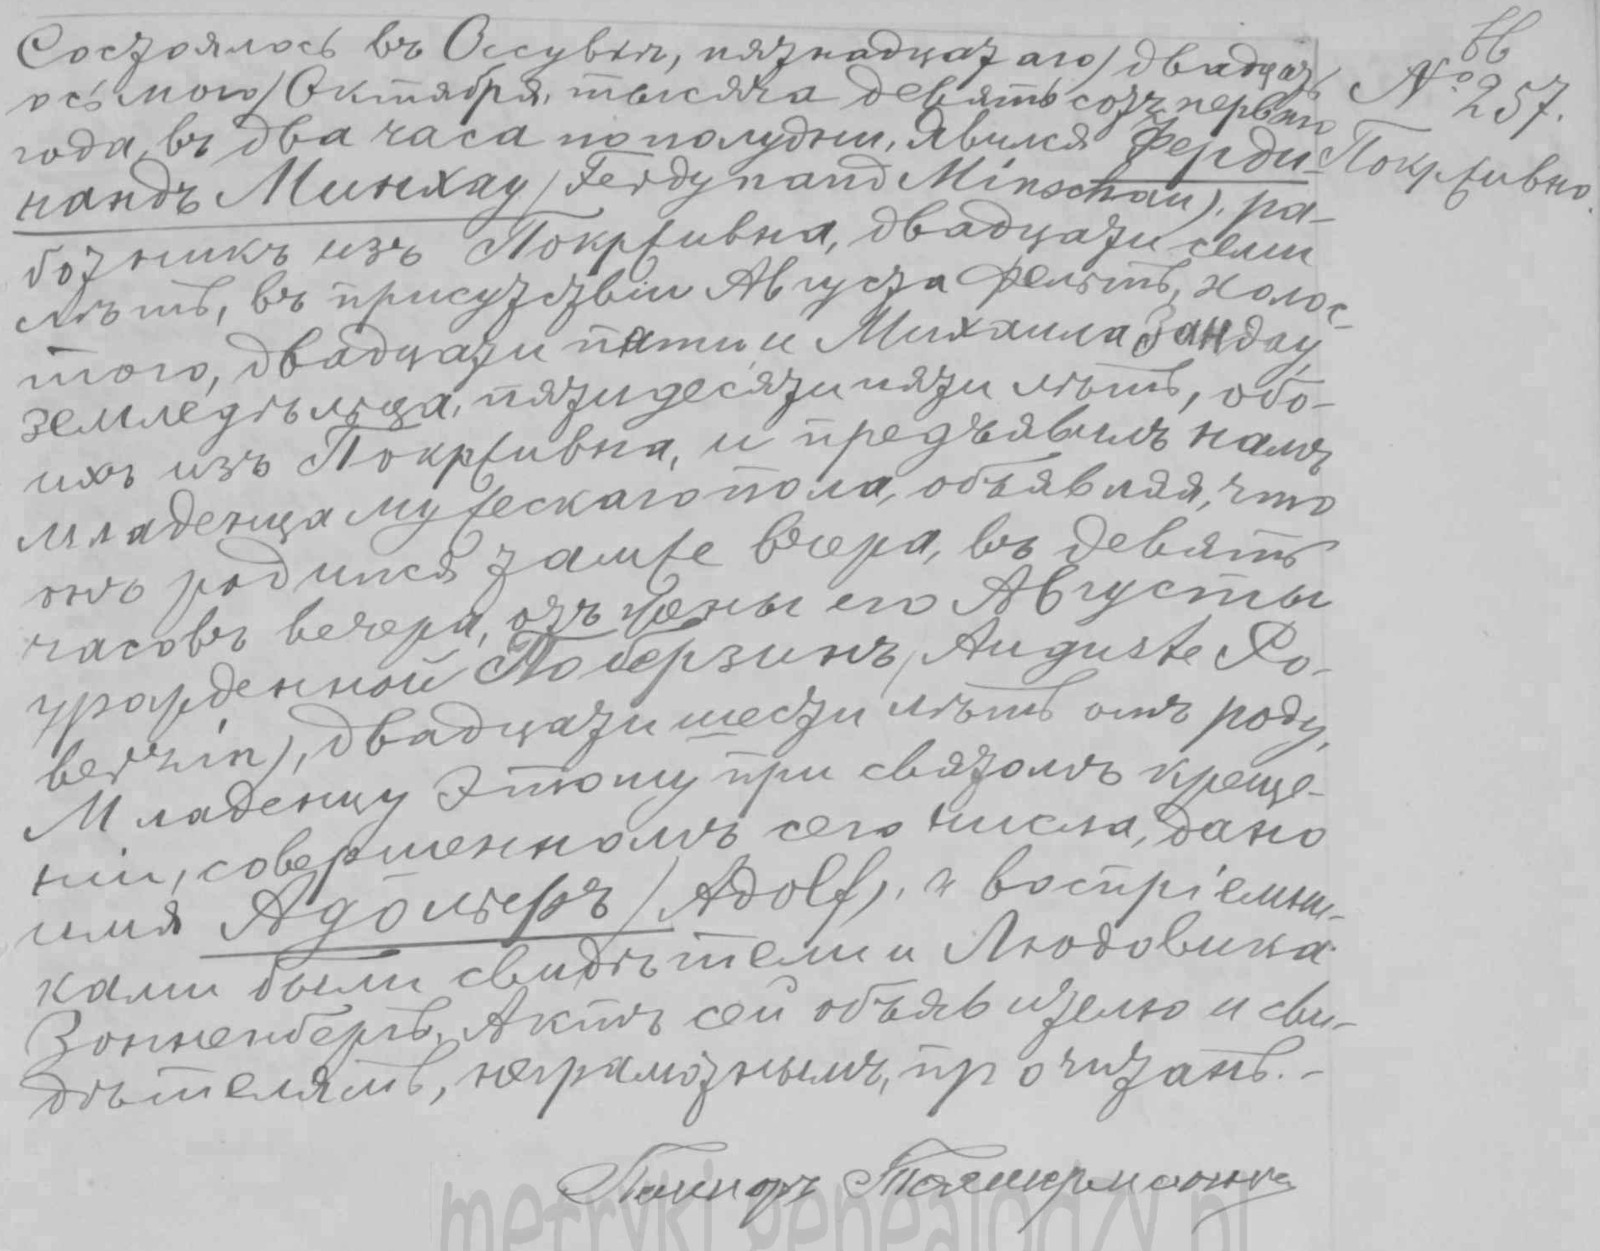 Состоялось въ Оссувкѣ, пятнадцатаго/двадцать
осьмого/Октября, тысяча девятьсотъ перваго
года, въ два часа по полудни. Явился Ферди-
нандъ Минхау /Ferdynand Minschau/. ра-
ботникъ изъ Покрживна, двадцати семи
лѣтъ, въ присутствіи Августа Фельтъ, холос-
того, двадцати пяти и Михаила Зандау,
земледѣльца, пятидесяти пяти лѣтъ, обо-
ихъ изъ Покрживна, и предъявилъ намъ
младенца мужескаго пола, объявляя, что
онъ родился тамже вчера, въ девять
часовъ вечера, отъ жены его Августы
урожденной Поберзинъ /Auguste Po-
berzin/, двадцати шести лѣтъ отъ роду,
Младенцу этому при святомъ креще-
ніи, совершенномъ сего числа, дано
имя Адольфъ /Adolf/. и воспріемни-
ками были свидѣтели и Людовика
Зонненбергъ. Актъ сей объявителю и сви-
дѣтелямъ, неграмотнымъ, прочитанъ. -
Пасторъ
вв
№ 257.
Покрживно.
metryki.genealodzy.pl